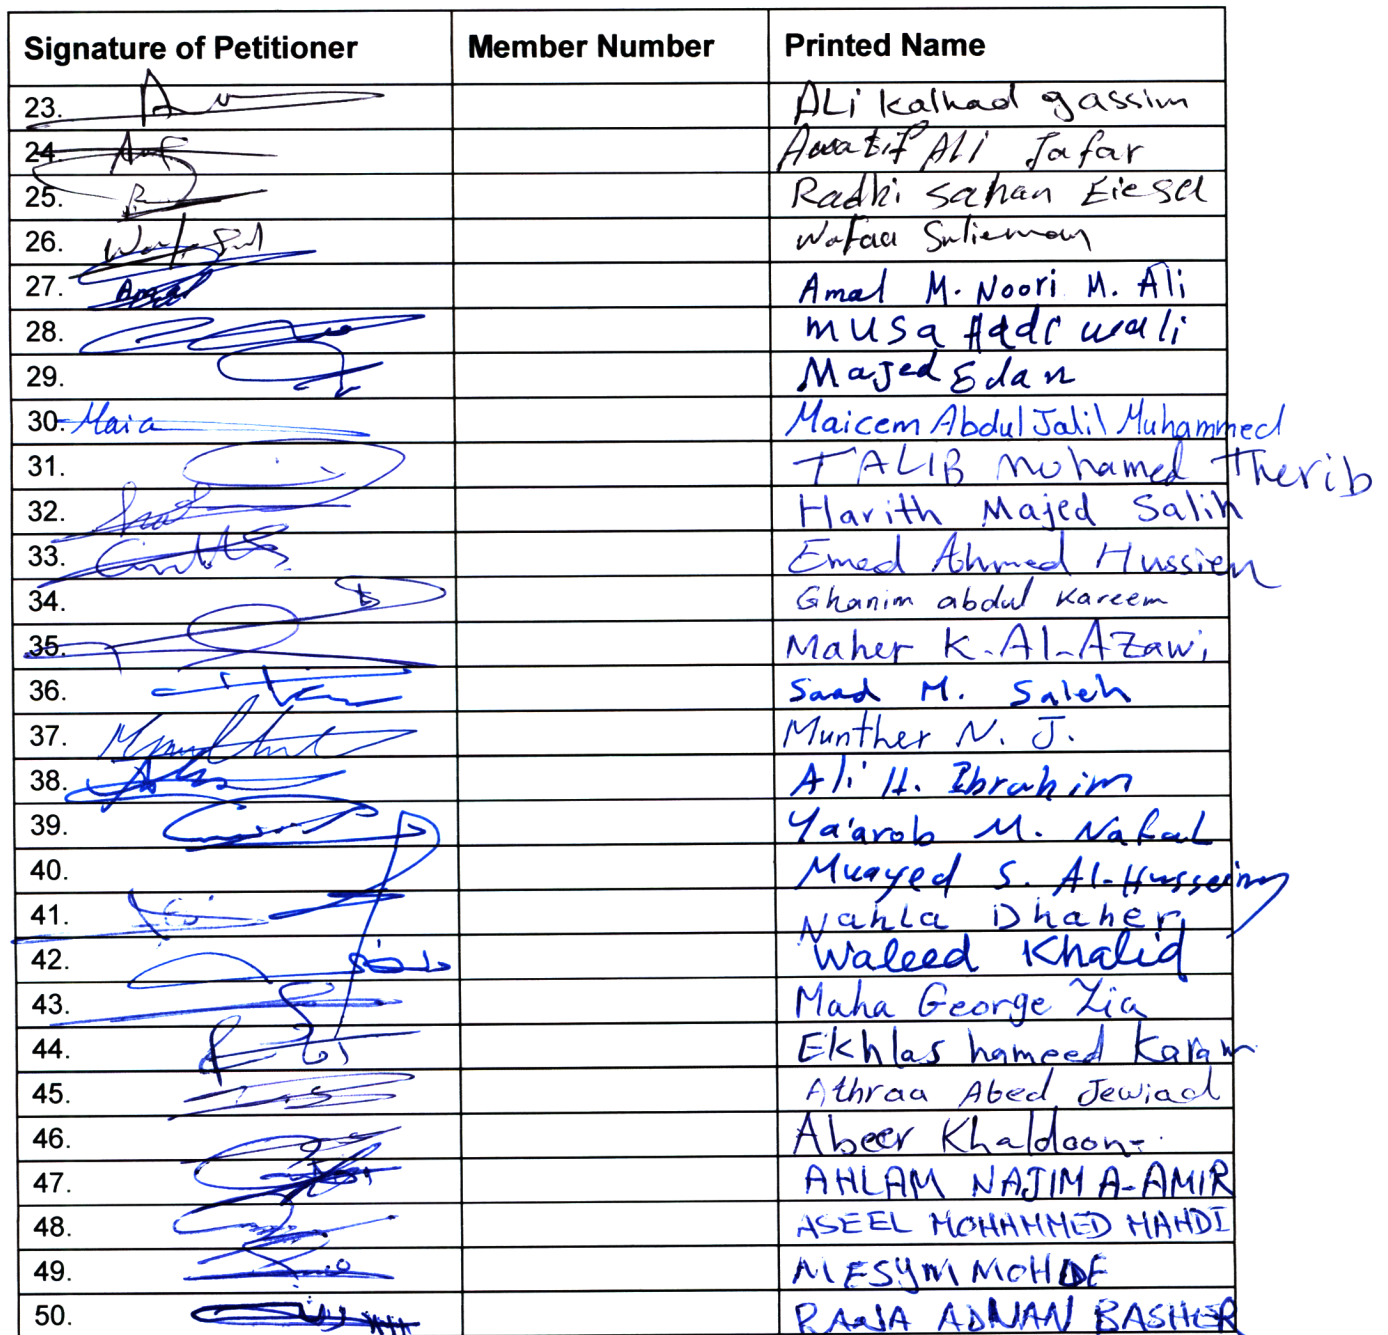 Signature of Petitioner Member Number Printed Name
23. ALi kalhad gassim
24. Awatif Ali Jafar
25. Radhi sahan Eiesa
26. Wafaa Sulieman
27. Amal Amal M. Noori M. Ali
28. musa Hadi wali
29. Majed Edan
30. Maia Maicem Abdul Jalil Muhammed
31. TALIB Mohamed Therib
32. Harith Majed Salih
33. Emad Ahmed Hussien
34. Ghanim abdul Kareem
35. Maher K. Al-AZawi
36. Saad M. Saleh
37. Munther N. J.
38. Ali H. Ibrahim
39. Ya'arob M. Nafal
40. Muayed S. Al-Husseiny
41. Nahla Dhaher
42. Waleed Khalid
43. Maha George Zia
44. Ekhlas hameed Karam
45. Athraa Abed Jewiad
46. Abeer Khaldoon
47. AHLAM NAJIM A-AMIR
48. ASEEL MOHAMMED MAHDI
49. MESYM MOHDE
50. RANA ADNAN BASHER